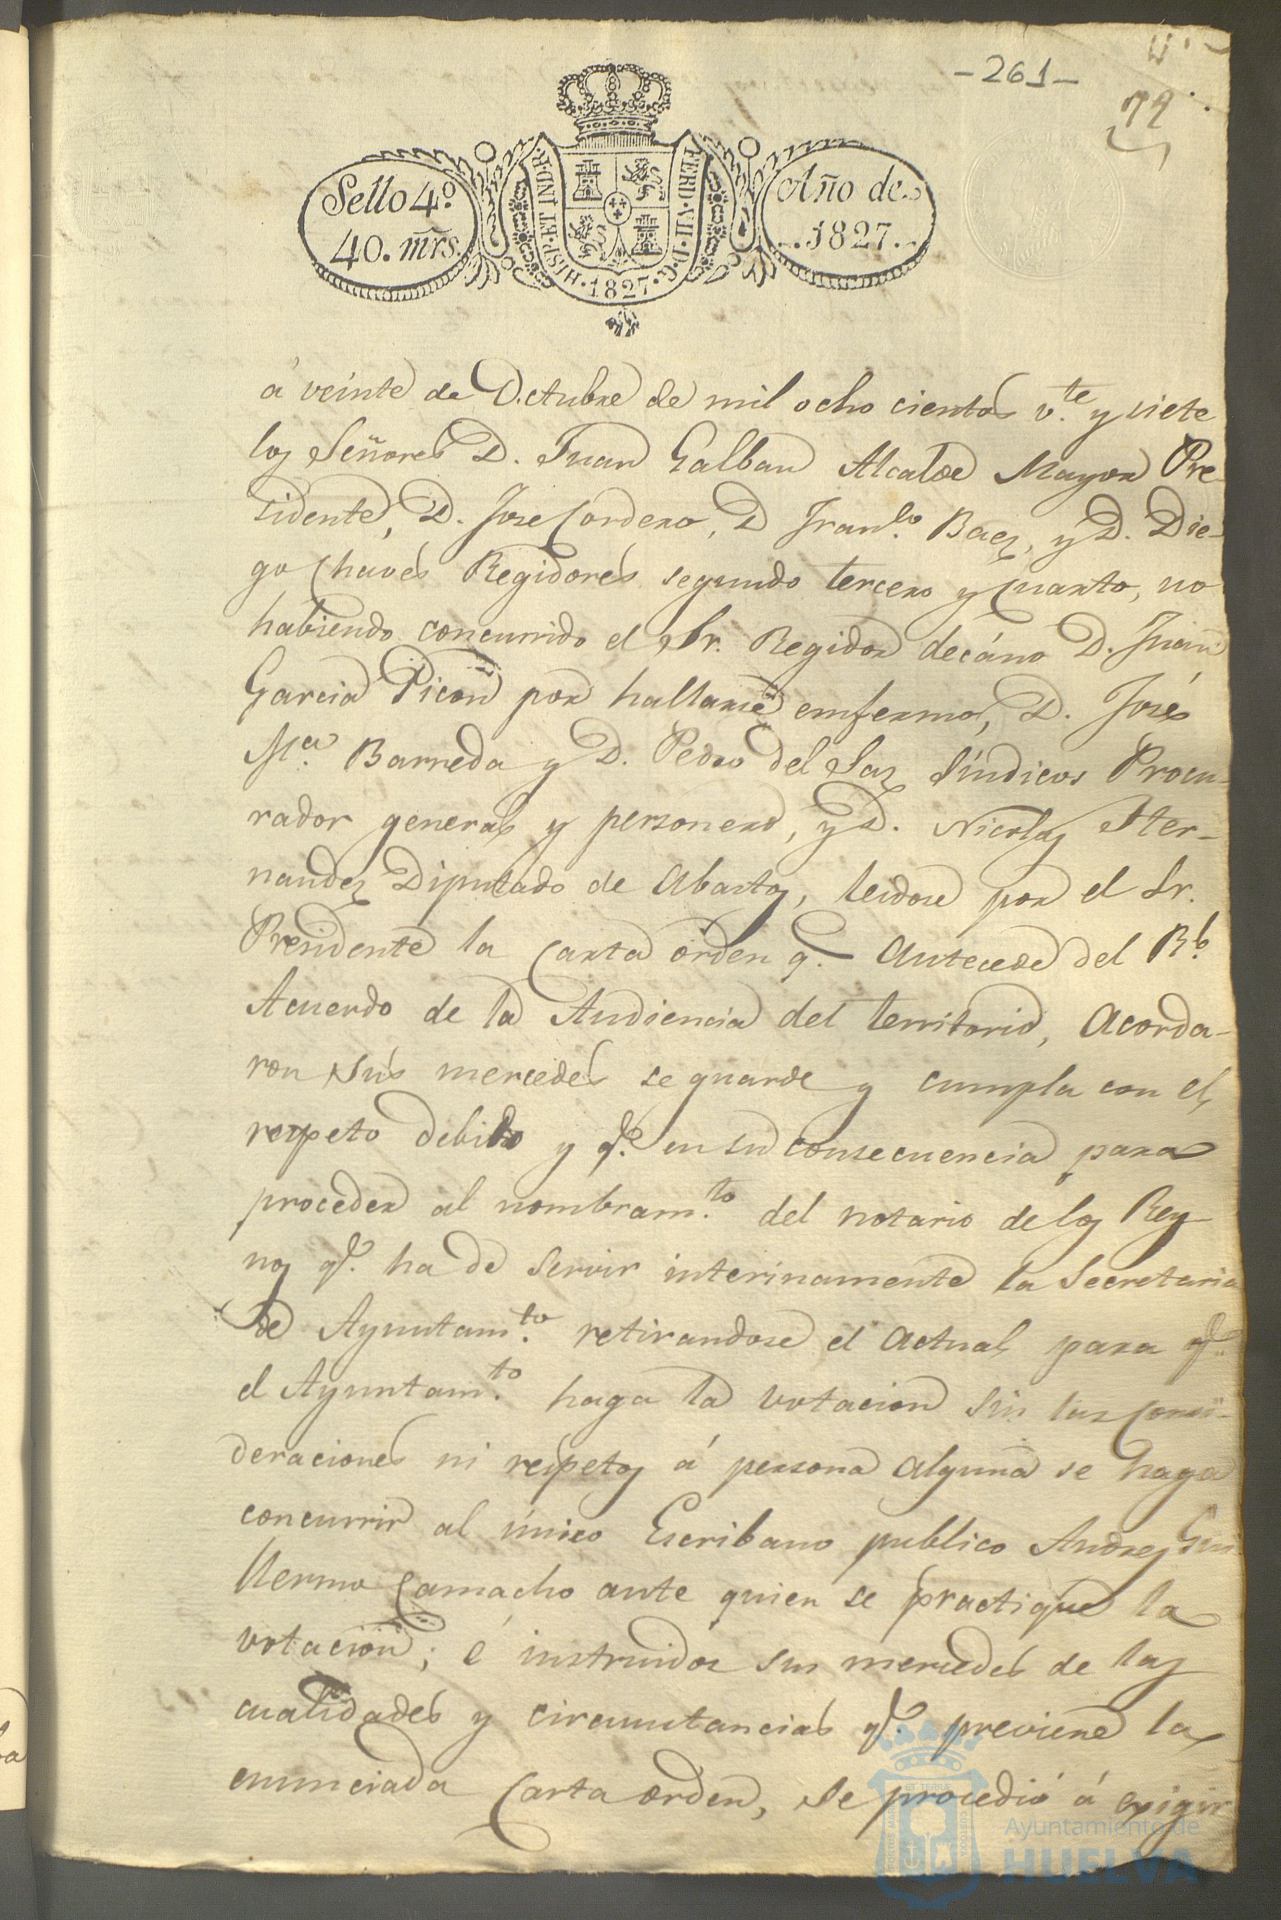 -261-
79
Sello 4º
40. mrs.
HISP. ET IND. R.
FERD. VII. D. G.
.1827.
Año de
1827.
á veinte de Octubre de mil ocho cientos v.te y siete
los Señores D. Juan Galban Alcalde Mayor Pre-
sidente, D. Jose Cordero, D Fran.co Baez, y D. Die-
go Chaves Regidores segundo tercero y Cuarto, no
habiendo concurrido el Sr. Regidor decáno D. Juan
Garcia Picon por hallarse enfermo, D. José
M.a Barreda y D. Pedro del Saz Síndicos Procu-
rador general y personero, y D. Nicolas Her-
nandez Diputado de Abastos, leidose por el Sr.
Presidente la Carta órden q.e antecede del Rl.
Acuerdo de la Audiencia del territorio, Acorda-
ron sus mercedes se guarde y cumpla con el
respeto debido y q.e en su consecuencia para
proceder al nombram.to del notario de los Rey-
nos q.e ha de servir interinamente la Secretaria
de Ayuntam.to retirandose el actual para q.e
el Ayuntam.to haga la votacion sin las consi-
deraciones ni respetos á persona alguna se haga
concurrir al único Escribano publico Andres Gui
llermo Camacho ante quien se practique la
votacion; é instruidos sus mercedes de las
cualidades y circunstancias q.e previene la
enunciada Carta orden, se procedió á exigir
Ayuntamiento de
HUELVA